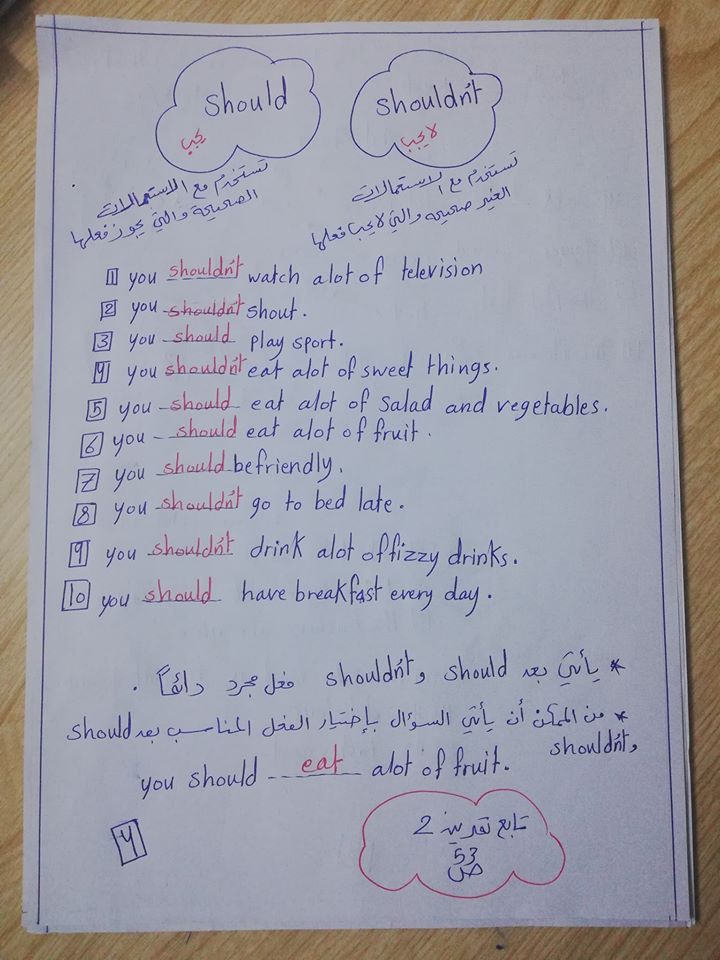 should
shouldn't
يجب
لا يجب
تستخدم مع الاستعمالات
الصحيحة والتي يجوز فعلها
تستخدم مع الاستعمالات
الغير صحيحه والتي لا يجب فعلها
1 you shouldn't watch alot of television
2 you shouldn't shout.
3 you should play sport.
4 you shouldn't eat alot of sweet things.
5 you should eat alot of salad and vegetables.
6 you should eat alot of fruit.
7 you should be friendly.
8 you shouldn't go to bed late.
9 you shouldn't drink alot of fizzy drinks.
10 you should have breakfast every day.
* يأتي بعد should و shouldn't فعل مجرد دائماً .
* من الممكن أن يأتي السؤال بإختيار الفعل المناسب بعد should
و shouldn't
you should eat alot of fruit.
4
تابع تمرين 2
53
ص